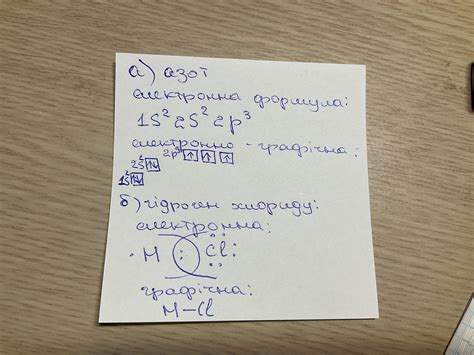 а) азот
електронна формула:
1S² 2S² 2p³
електронно-графічна:
2p³ ↑ ↑ ↑
2S² ↑↓
1S² ↑↓
б) гідроген хлориду:
електронна:
· H : Cl :
графічна:
H–Cl